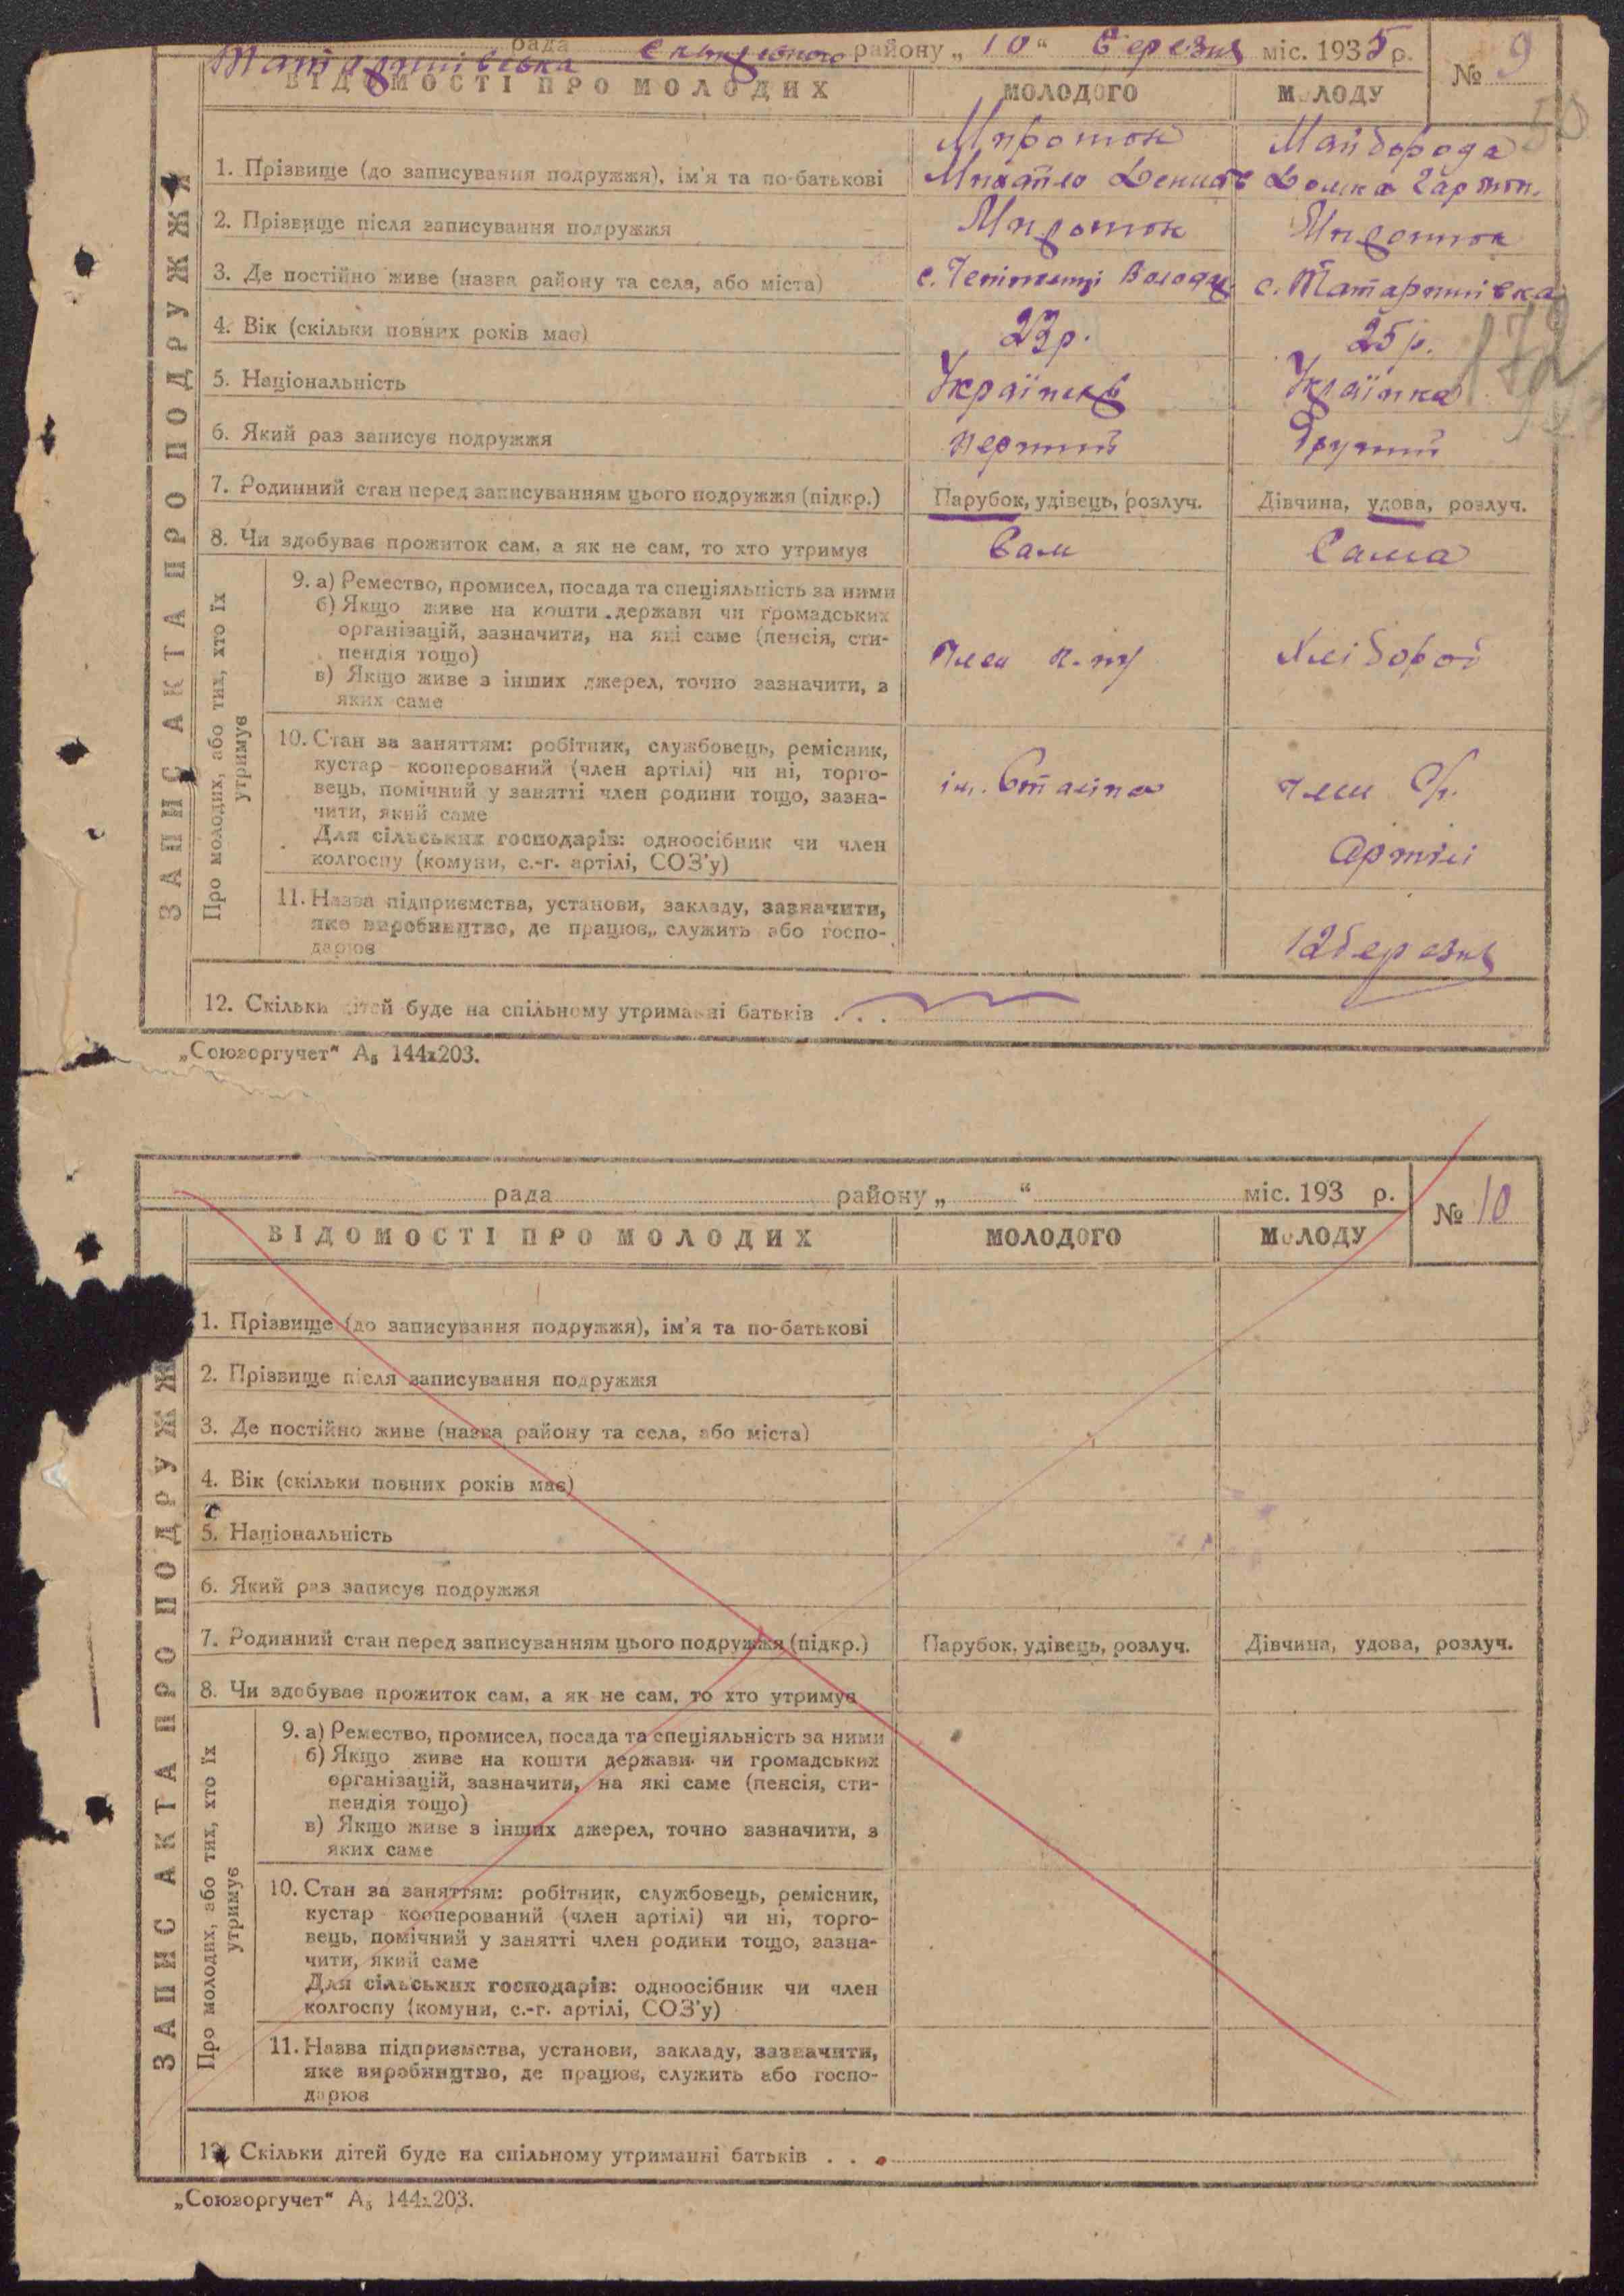 Татаринівська рада району „ 10 “ Березня міс. 1935 р.
№ 9
50
ВІДОМОСТІ ПРО МОЛОДИХ
МОЛОДОГО
МОЛОДУ
ЗАПИС АКТА ПРО ПОДРУЖЖЯ
1. Прізвище (до записування подружжя), ім'я та по-батькові
Миротюк
Михайло Денисов
Майборода
2. Прізвище після записування подружжя
Миротюк
Миротюк
3. Де постійно живе (назва району та села, або міста)
с. Татаринівка
4. Вік (скільки повних років має)
23р.
25р.
172
5. Національність
Українець
Українка
6. Який раз записує подружжя
перший
другий
7. Родинний стан перед записуванням цього подружжя (підкр.)
Парубок, удівець, розлуч.
Дівчина, удова, розлуч.
8. Чи здобуває прожиток сам, а як не сам, то хто утримує
Сам
Сама
Про молодих, або тих, хто їх
утримує
9. а) Ремество, промисел, посада та спеціяльність за ними
б) Якщо живе на кошти держави чи громадських
організацій, зазначити, на які саме (пенсія, сти-
пендія тощо)
в) Якщо живе з інших джерел, точно зазначити, з
яких саме
Член
Хлібороб
10. Стан за заняттям: робітник, службовець, ремісник,
кустар - кооперований (член артілі) чи ні, торго-
вець, помічний у занятті член родини тощо, зазна-
чити, який саме
Для сільських господарів: одноосібник чи член
колгоспу (комуни, с.-г. артілі, СОЗ'у)
ім. Сталіна
член С/г.
Артілі
11. Назва підприємства, установи, закладу, зазначити,
яке виробництво, де працює, служить або госпо-
дарює
12 березня
12. Скільки дітей буде на спільному утриманні батьків . . .
„Союзоргучет“ А₅ 144x203.
рада району „ “ міс. 193 р.
№ 10
ВІДОМОСТІ ПРО МОЛОДИХ
МОЛОДОГО
МОЛОДУ
ЗАПИС АКТА ПРО ПОДРУЖ
1. Прізвище (до записування подружжя), ім'я та по-батькові
2. Прізвище після записування подружжя
3. Де постійно живе (назва району та села, або міста)
4. Вік (скільки повних років має)
5. Національність
6. Який раз записує подружжя
7. Родинний стан перед записуванням цього подружжя (підкр.)
Парубок, удівець, розлуч.
Дівчина, удова, розлуч.
8. Чи здобуває прожиток сам, а як не сам, то хто утримує
Про молодих, або тих, хто їх
утримує
9. а) Ремество, промисел, посада та спеціяльність за ними
б) Якщо живе на кошти держави чи громадських
організацій, зазначити, на які саме (пенсія, сти-
пендія тощо)
в) Якщо живе з інших джерел, точно зазначити, з
яких саме
10. Стан за заняттям: робітник, службовець, ремісник,
кустар - кооперований (член артілі) чи ні, торго-
вець, помічний у занятті член родини тощо, зазна-
чити, який саме
Для сільських господарів: одноосібник чи член
колгоспу (комуни, с.-г. артілі, СОЗ'у)
11. Назва підприємства, установи, закладу, зазначити,
яке виробництво, де працює, служить або госпо-
дарює
12. Скільки дітей буде на спільному утриманні батьків . . .
„Союзоргучет“ А₅ 144x203.